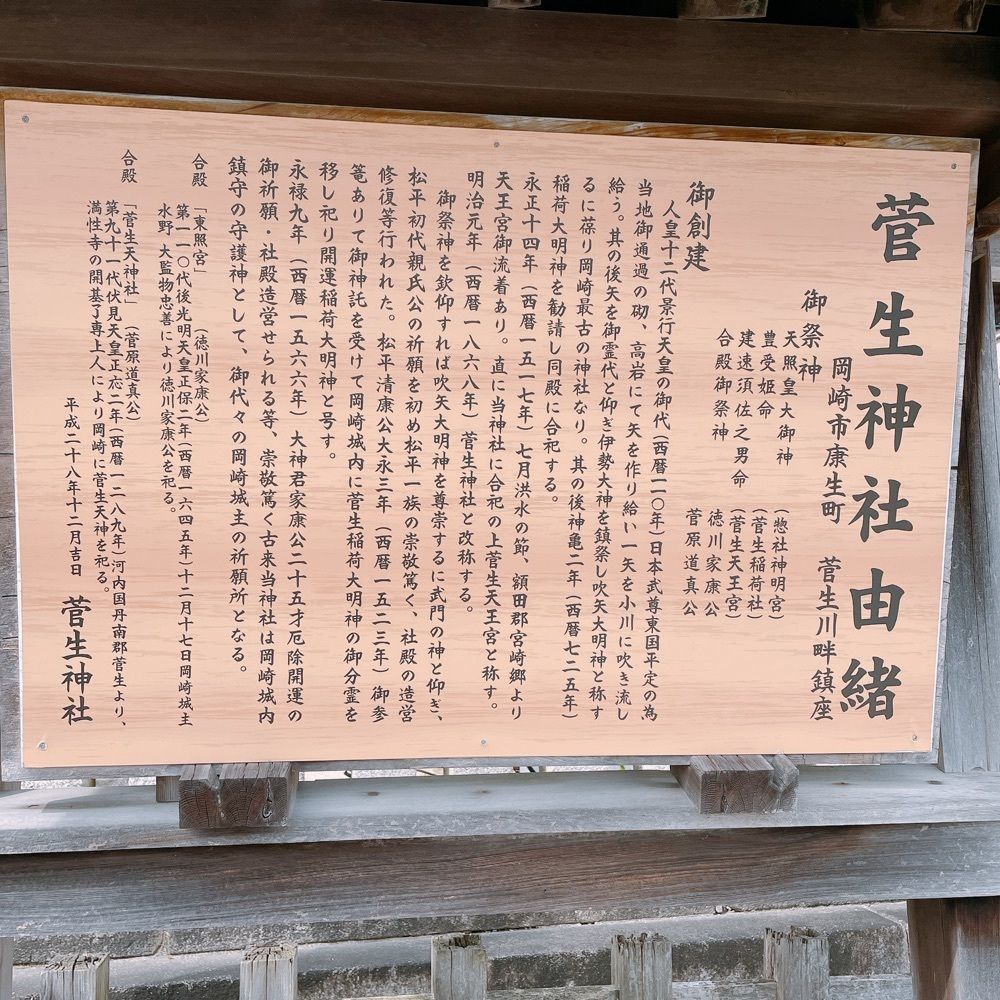 菅生神社由緒
岡崎市康生町　菅生川畔鎮座
御祭神
天照皇大御神　（惣社神明宮）
豊受姫命　（菅生稲荷社）
建速須佐之男命　（菅生天王宮）
合殿御祭神　徳川家康公
菅原道真公
御創建
人皇十二代景行天皇の御代（西暦一一〇年）日本武尊東国平定の為、
当地御通過の砌、高岩にて矢を作り給い一矢を小川に吹き流し
給う。其の後矢を御霊代と仰ぎ伊勢大神を鎮祭し吹矢大明神と称す
るに葆り岡崎最古の神社なり。其の後神亀二年（西暦七二五年）
稲荷大明神を勧請し同殿に合祀する。
永正十四年（西暦一五一七年）七月洪水の節、額田郡宮崎郷より
天王宮御流着あり。直に当神社に合祀の上菅生天王宮と称す。
明治元年（西暦一八六八年）菅生神社と改称する。
御祭神を欽仰すれば吹矢大明神を尊崇するに武門の神と仰ぎ、
松平初代親氏公の祈願を初め松平一族の崇敬篤く、社殿の造営
修復等行われた。松平清康公大永三年（西暦一五二三年）御参
篭ありて御神託を受けて岡崎城内に菅生稲荷大明神の御分霊を
移し祀り開運稲荷大明神と号す。
永禄九年（西暦一五六六年）大神君家康公二十五才厄除開運の
御祈願・社殿造営せられる等、崇敬篤く古来当神社は岡崎城内
鎮守の守護神として、御代々の岡崎城主の祈願所となる。
合殿　「東照宮」　（徳川家康公）
第一一〇代後光明天皇正保二年（西暦一六四五年）十二月十七日岡崎城主
水野　大監物忠善により徳川家康公を祀る。
合殿　「菅生天神社」　（菅原道真公）
第九十一代伏見天皇正応二年（西暦一二八九年）河内国丹南郡菅生より、
満性寺の開基了専上人により岡崎に菅生天神を祀る。
平成二十八年十二月吉日　菅生神社